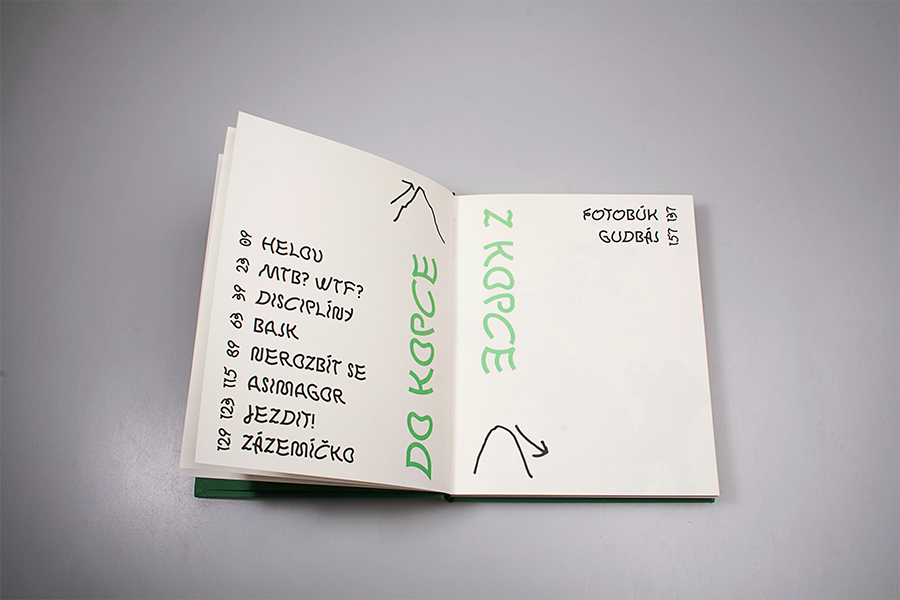 09 HELOU
23 MTB? WTF?
39 DISCIPLÍNY
63 BAJK
89 NEROZBÍT SE
115 ASIMAGOR
123 JEZDIT!
129 ZÁZEMÍČKO
DO KOPCE
Z KOPCE
FOTOBÚK 137
GUDBÁJ 157